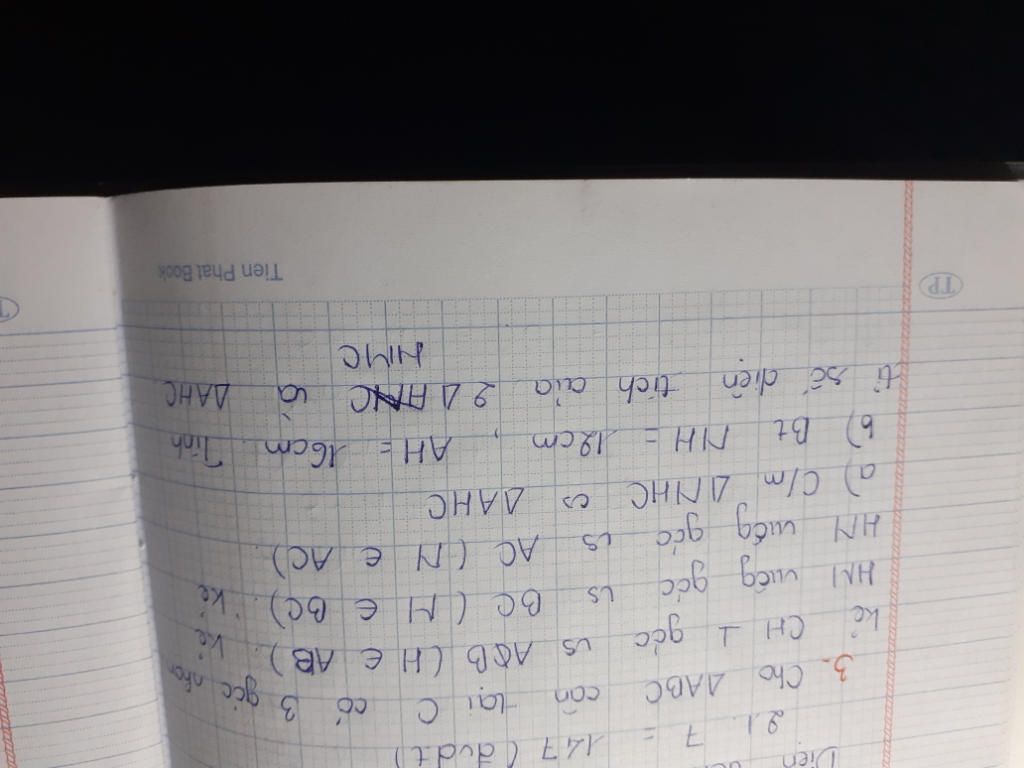 Diện
21. 7 = 147 (đvdt)
3. Cho ΔABC cân tại C có 3 góc nhọn
kẻ CH ⊥ góc vs AB (H ∈ AB). kẻ
HM vuôg góc vs BC (M ∈ BC). kẻ
HN vuôg góc vs AC (N ∈ AC).
a) C/m ΔNHC ∽ ΔAHC
b) Bt NH = 12cm, AH = 16cm. Tính
tỉ số diện tích của 2 Δ và ΔAHC
HMC
Tien Phat Book
TP